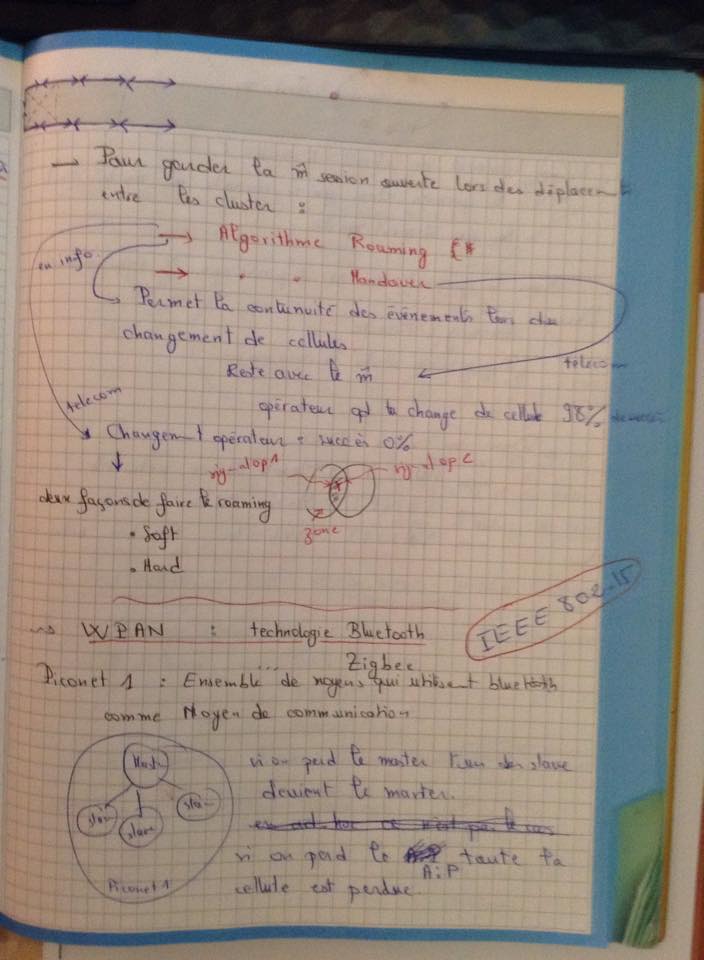 → Pour garder la m̂ session ouverte lors des déplacement
entre les cluster :
en info
→ Algorithme Roaming
→ " " Handover
Permet la continuité des événements lors du
changement de cellules
Reste avec le m̂
telecom
opérateur qd tu change de cellule 98% de succès
telecom
Changement opérateur = succès 0%
deux façons de faire le roaming
zone
• Soft
• Hard
IEEE 802.15
WPAN : technologie Bluetooth
Zigbee
...
Piconet 1 : Ensemble de noyens qui utilisent bluetooth
comme Moyen de communication
Master
slave
slave
slave
Piconet 1
si on perd le master l'un des slave
devient le master.
en ad. hoc ce n'est pas le cas
si on perd le A.P toute la
cellule est perdue.